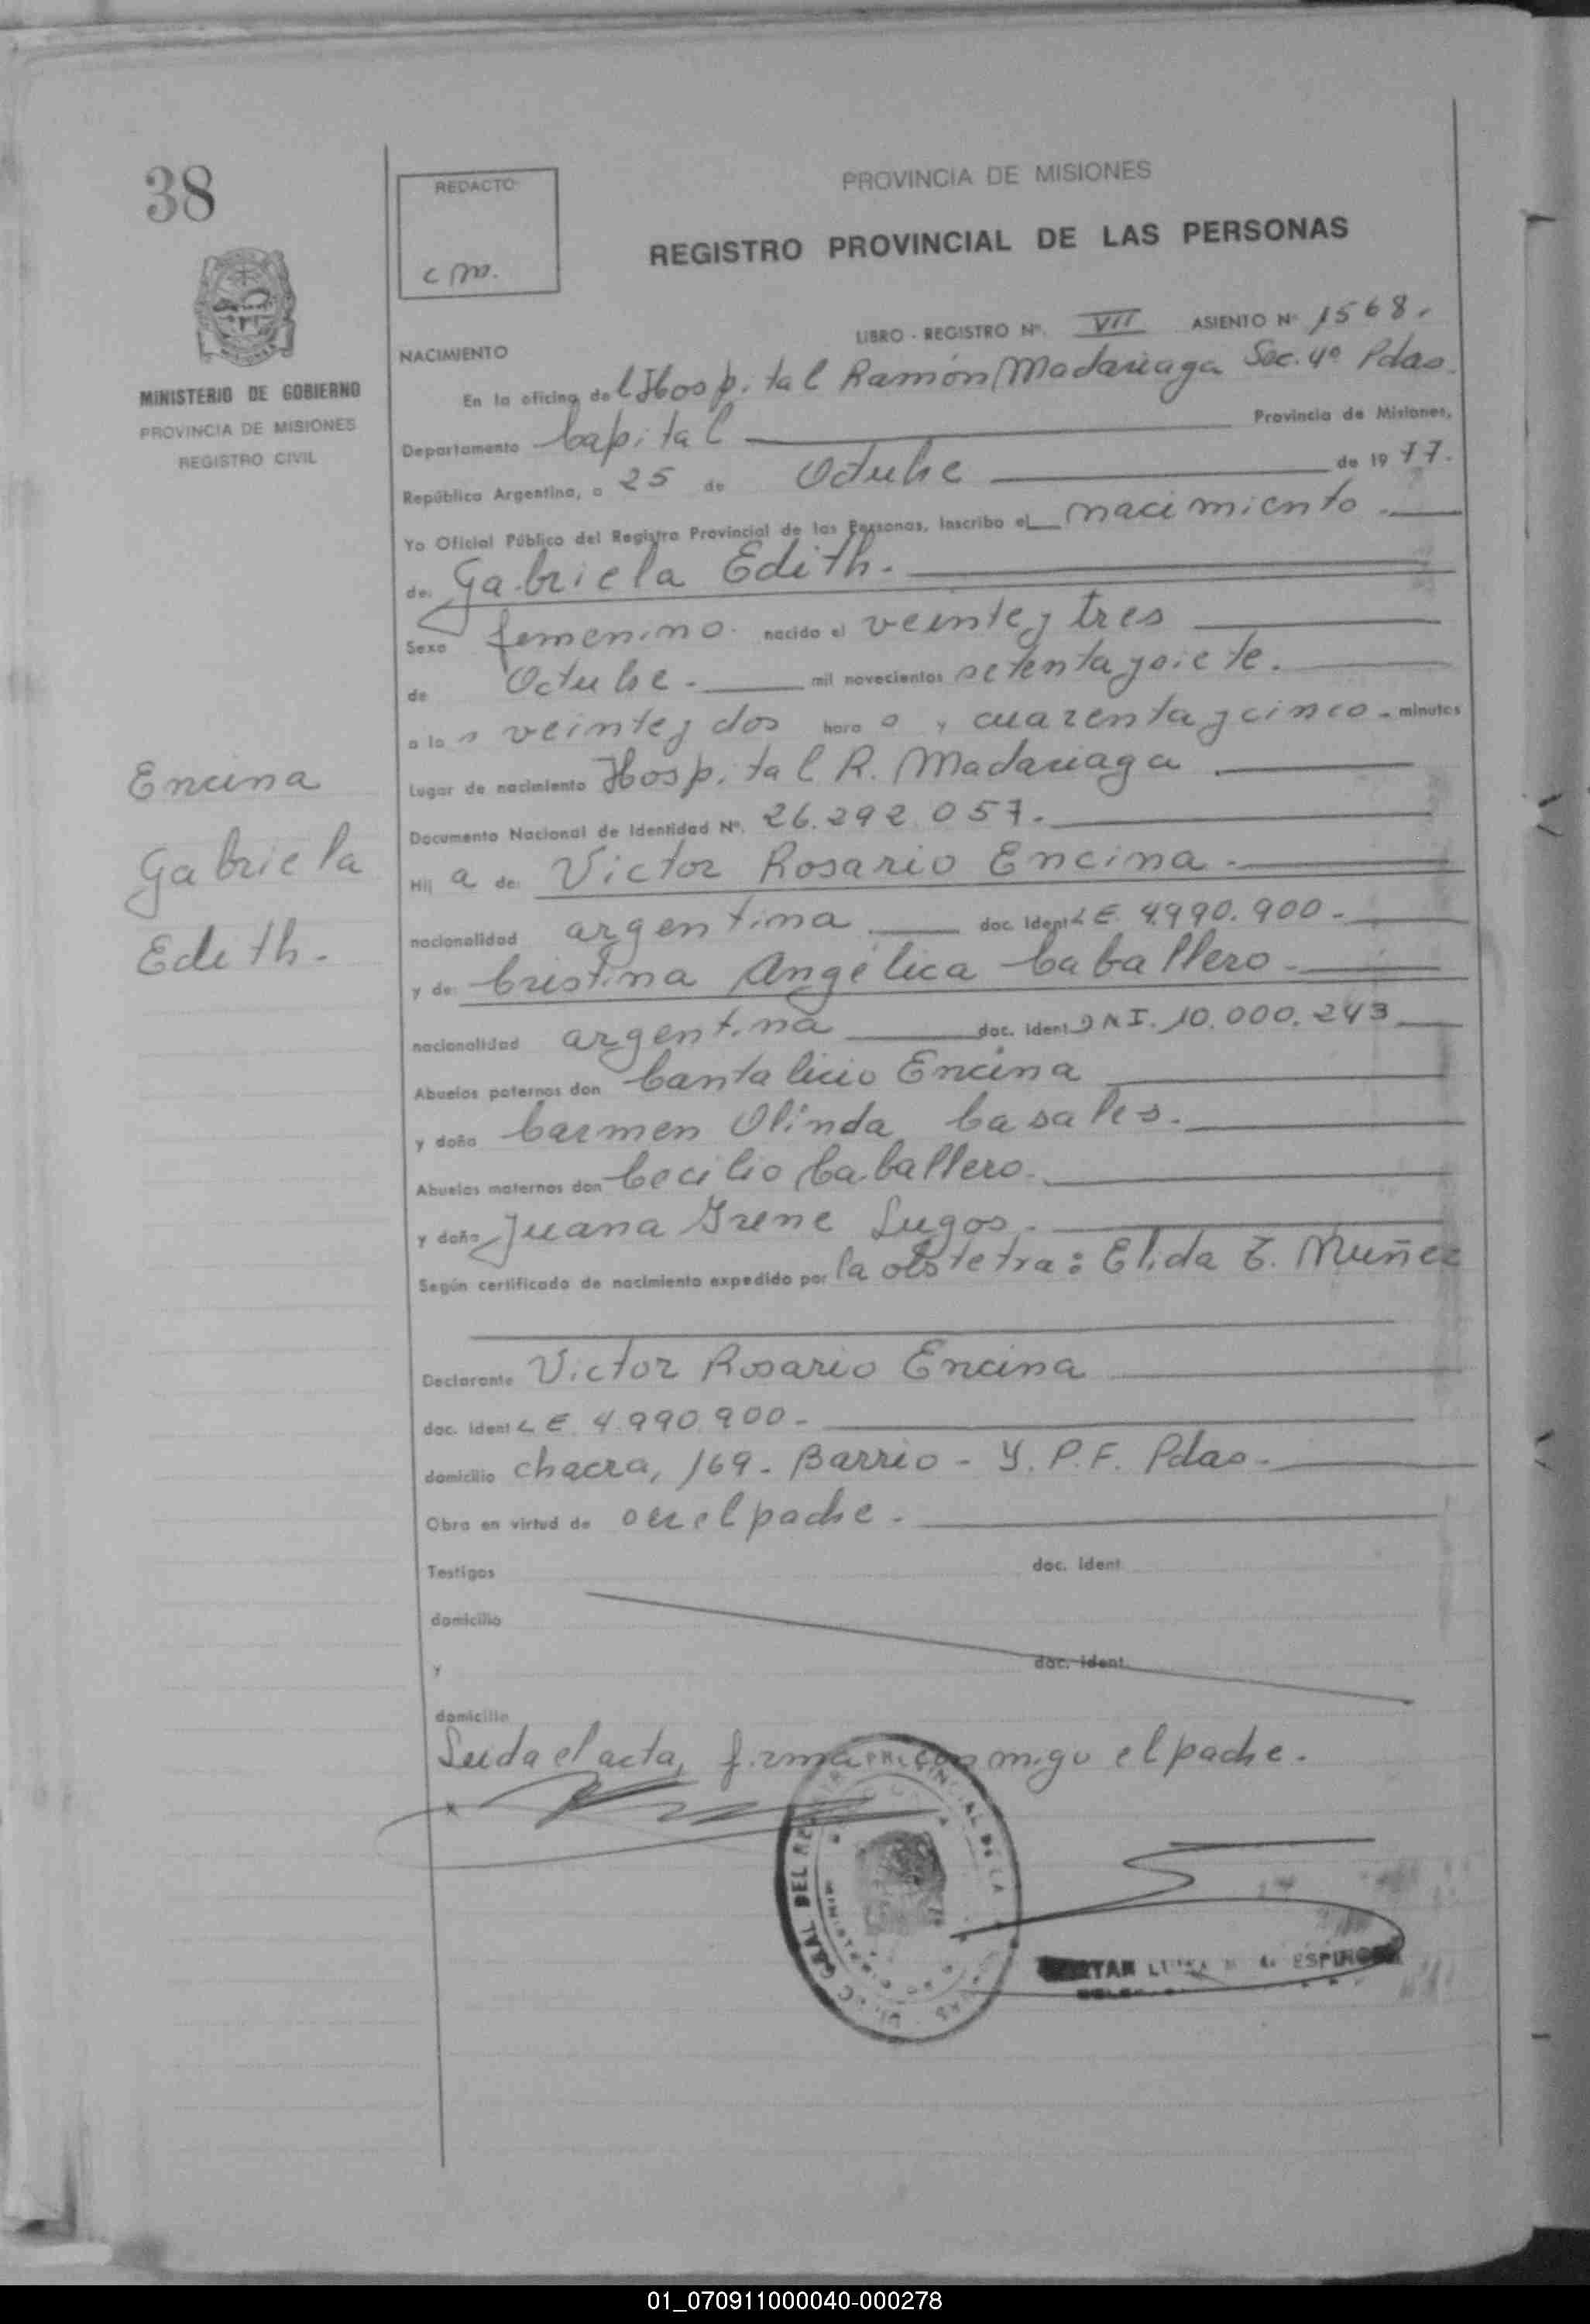 38
REDACTO:
c m.
PROVINCIA DE MISIONES
REGISTRO PROVINCIAL DE LAS PERSONAS
MINISTERIO DE GOBIERNO
PROVINCIA DE MISIONES
REGISTRO CIVIL
LIBRO - REGISTRO Nº. VII ASIENTO Nº 1568.
NACIMIENTO
En la oficina del Hospital Ramón Madariaga Sec. 4º Pdas.
Departamento Capital Provincia de Misiones,
República Argentina, a 25 de Octubre de 1977.
Yo Oficial Público del Registro Provincial de las Personas, Inscribo el nacimiento.
de: Gabriela Edith.
Sexo femenino. nacido el veinte y tres
de Octubre. mil novecientos setenta y siete.
a las veinte y dos hora s y cuarenta y cinco - minutos
Lugar de nacimiento Hospital R. Madariaga
Documento Nacional de Identidad Nº. 26.292.057.
Hij a de: Victor Rosario Encina.
nacionalidad argentina doc. Ident L E. 4.990.900-
y de: Cristina Angélica Caballero-
nacionalidad argentina doc. Ident D N I. 10.000.243
Abuelos paternos don Cantalicio Encina
y doña Carmen Olinda Casales.
Abuelos maternos don Cecilio Caballero.
y doña Juana Irene Lugos.
Según certificado de nacimiento expedido por la obstetra: Elida E. Muñez
Declarante Victor Rosario Encina
doc. Ident L E. 4.990.900-
domicilio chacra, 169- Barrio - Y. P. F. Pdas.
Obra en virtud de ser el padre.
Testigos doc. Ident.
domicilio
y doc. Ident.
domicilio
Leida el acta, firma conmigo el padre.
Encina
Gabriela
Edith.
01_070911000040-000278